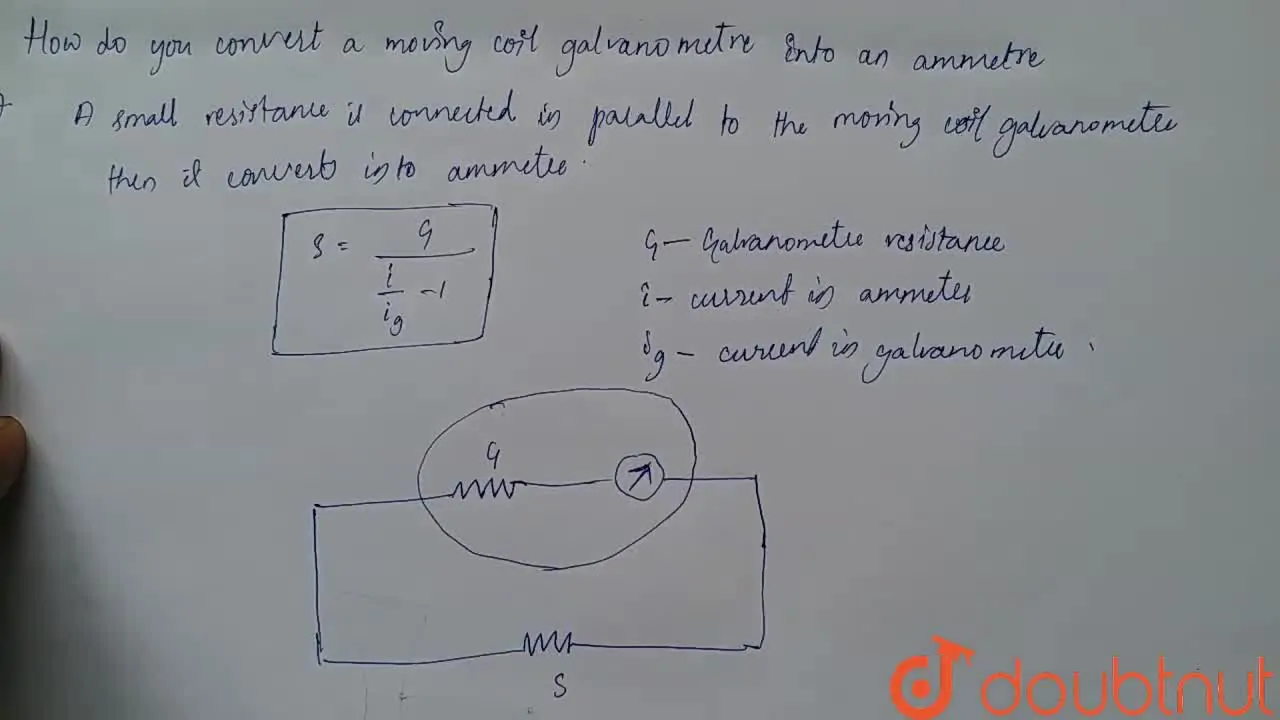 How do you convert a moving coil galvanometre into an ammetre
A small resistance is connected in parallel to the moving coil galvanometer
then it converts into ammeter.
S = G / (i/ig - 1)
G - Galvanometer resistance
i - current in ammeter
ig - current in galvanometer.
G
S
doubtnut